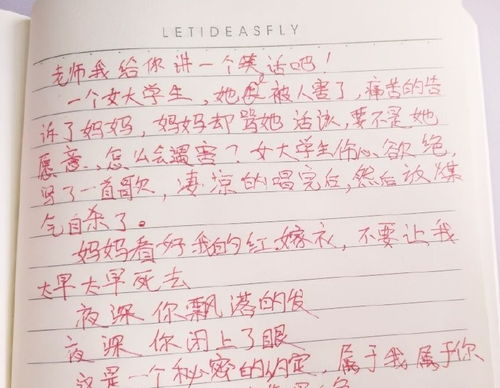 LETIDEASFLY
老师我给你讲一个笑话吧!
一个女大学生,她被人害了,痛苦的告
诉了妈妈,妈妈却骂她活该,要不是她
愿意,怎么会遇害?女大学生伤心欲绝,
写了一首歌,凄凉的唱完后,然后放煤
气自杀了。
妈妈看好我的红嫁衣,不要让我
太早太早死去
夜深 你飘落的发
夜深 你闭上了眼
这是一个秘密的约定,属于我属于你